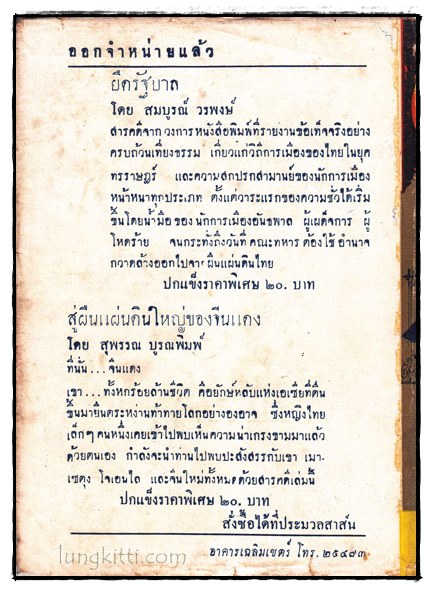 ออกจำหน่ายแล้ว
ยึดรัฐบาล
โดย สมบูรณ์ วรพงษ์
สารคดีจากวงการหนังสือพิมพ์ที่รายงานข้อเท็จจริงอย่าง
ครบถ้วนเที่ยงธรรม เกี่ยวแก่วิถีการเมืองของไทยในยุค
ทรราษฎร์ และความสกปรกสามานย์ของนักการเมือง
หน้าหนาทุกประเภท ตั้งแต่วาระแรกของความชั่วได้เริ่ม
ขึ้นโดยน้ำมือของนักการเมืองอันธพาล ผู้เผด็จการ ผู้
โหดร้าย จนกระทั่งถึงวันที่คณะทหารต้องใช้อำนาจ
กวาดล้างออกไปจากผืนแผ่นดินไทย
ปกแข็งราคาพิเศษ ๒๐. บาท
สู่ผืนแผ่นดินใหญ่ของจีนแดง
โดย สุพรรณ บูรณพิมพ์
ที่นั่น...จีนแดง
เขา...ทั้งหกร้อยล้านชีวิต คือยักษ์หลับแห่งเอเซียที่ตื่น
ขึ้นมายืนตระหง่านท้าทายโลกอย่างองอาจ ซึ่งหญิงไทย
เล็กๆ คนหนึ่งเคยเข้าไปพบเห็นความน่าเกรงขามมาแล้ว
ด้วยตนเอง กำลังจะนำท่านไปพบปะสังสรรกับเขา เมา-
เซตุง โจเอนไล และจีนใหม่ทั้งหมดด้วยสารคดีเล่มนี้
ปกแข็งราคาพิเศษ ๒๐. บาท
สั่งซื้อได้ที่ประมวลสาส์น
อาคารเฉลิมเขตร์ โทร. ๒๕๔๗๓
lungkitti.com